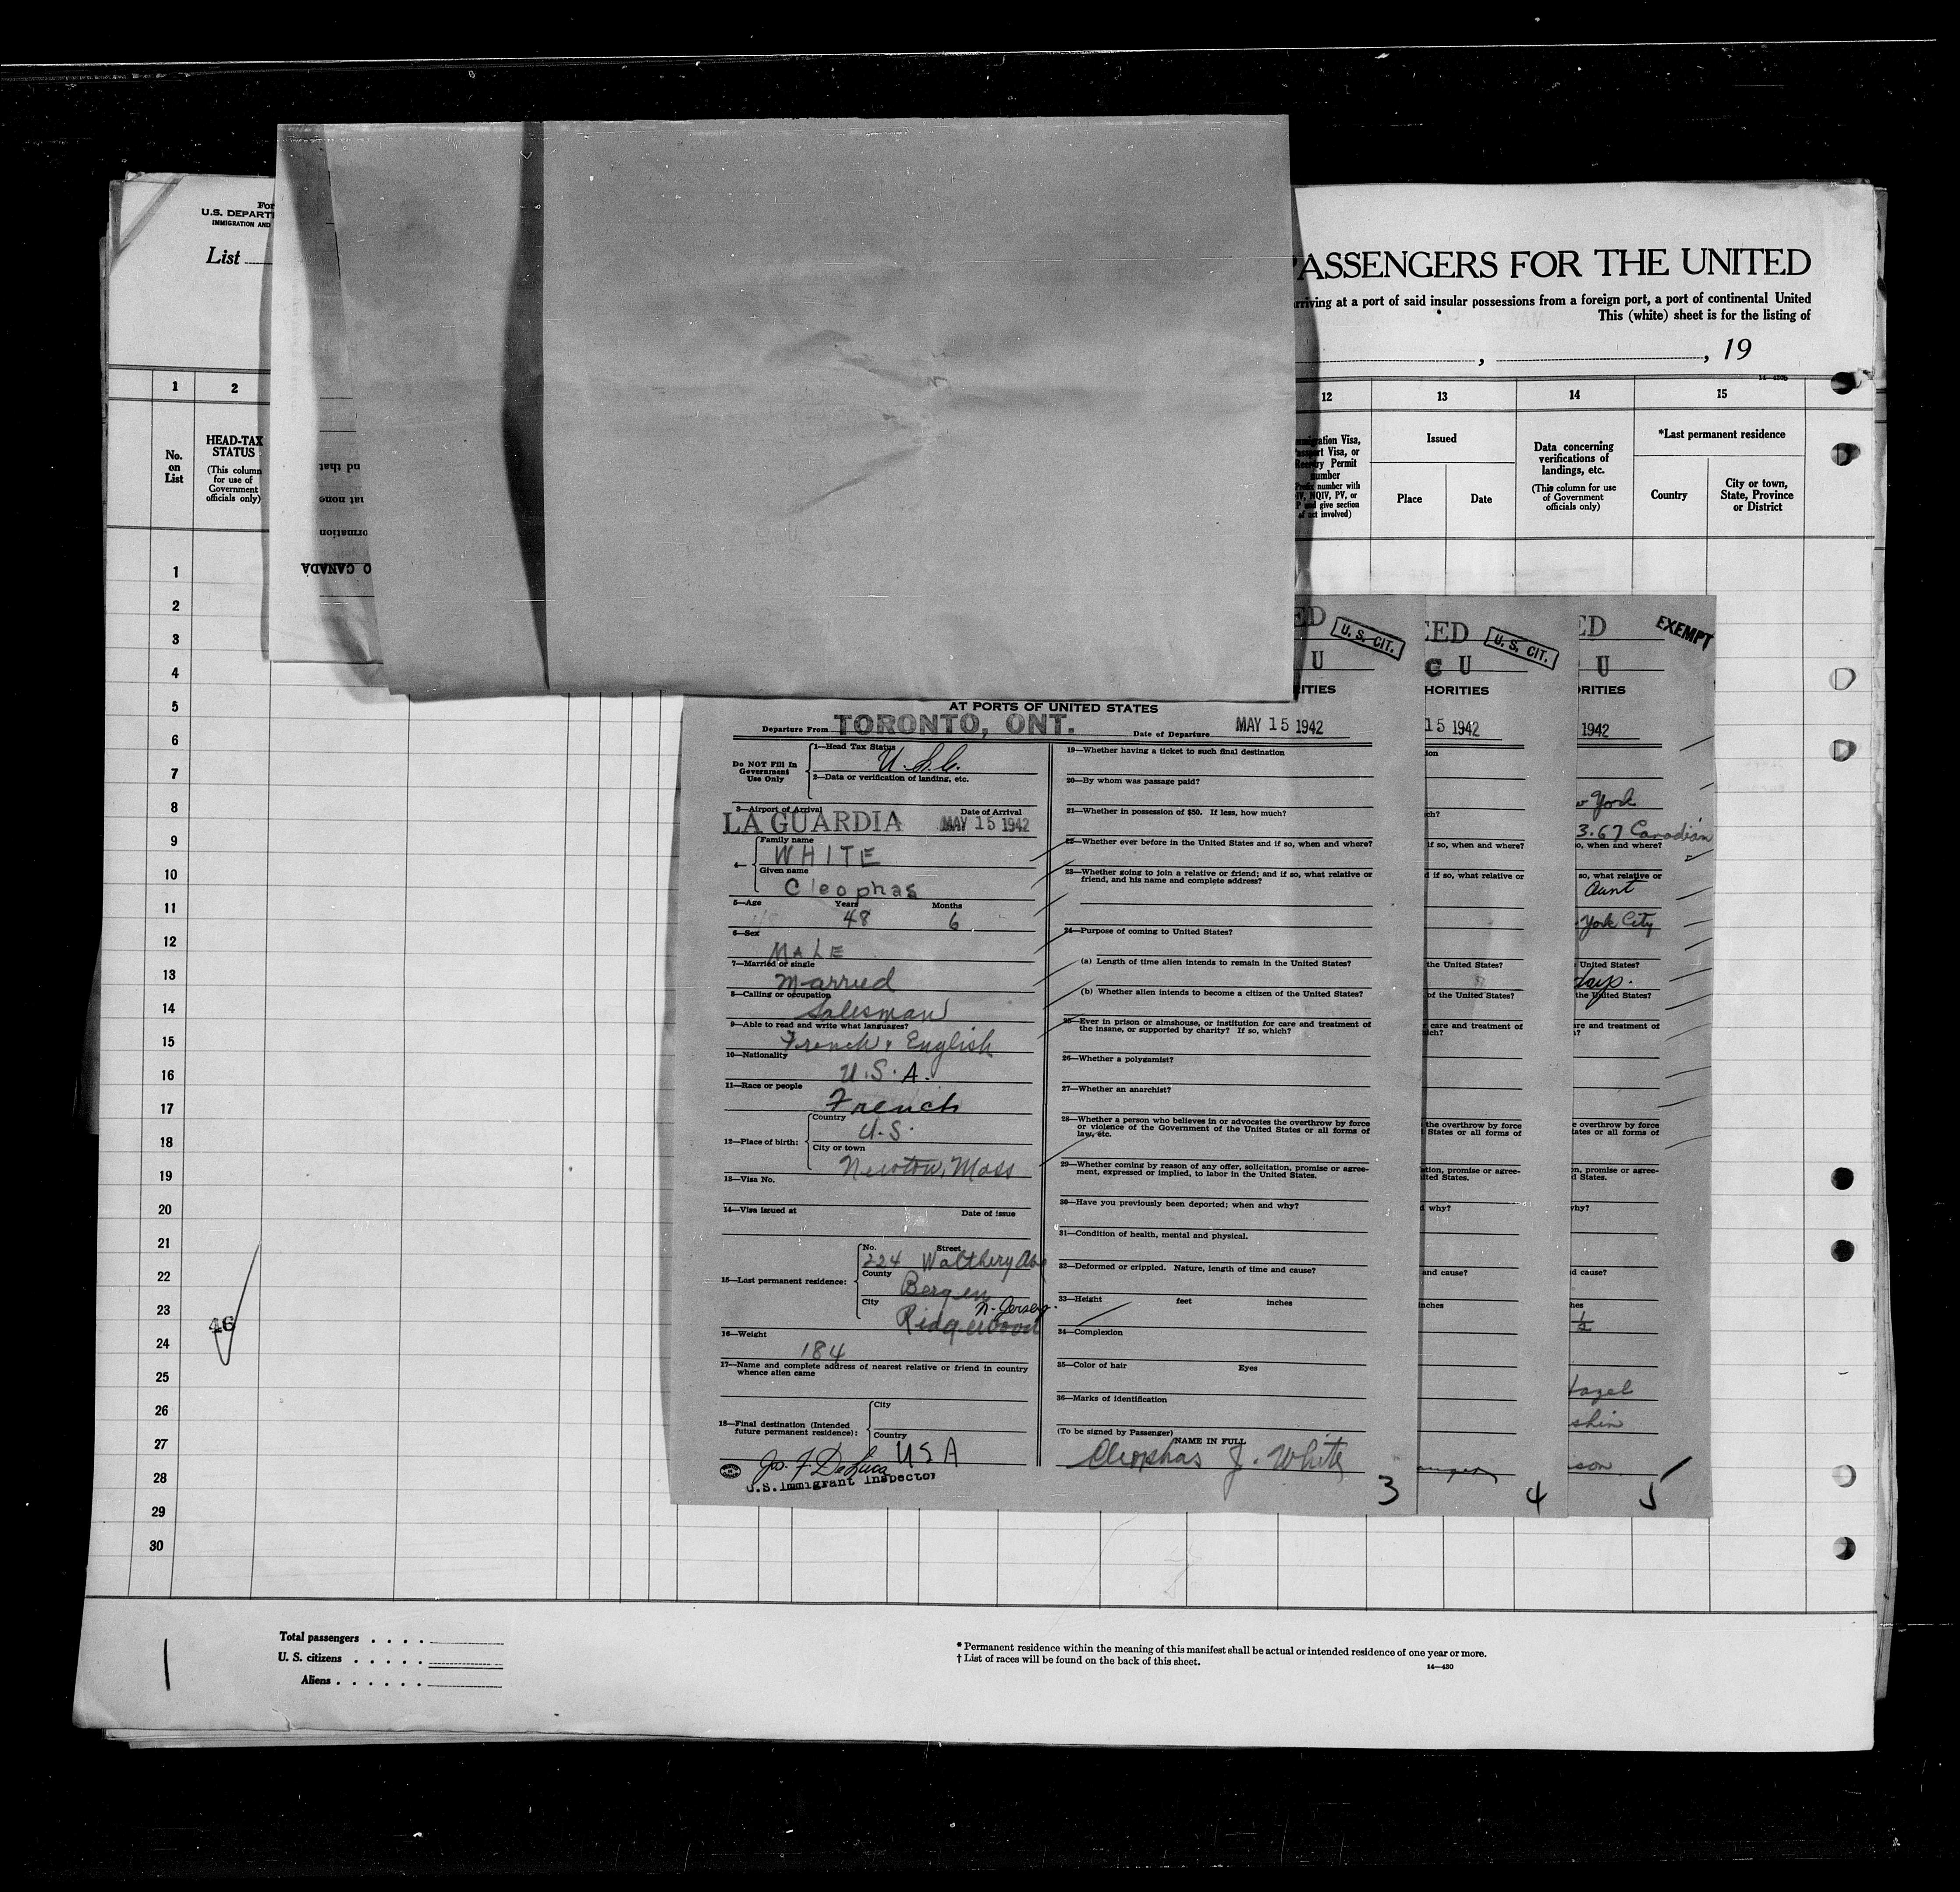 For
U.S. DEPART
IMMIGRATION AND
List
PASSENGERS FOR THE UNITED
arriving at a port of said insular possessions from a foreign port, a port of continental United
This (white) sheet is for the listing of
, , 19
14—430b
1 2 12 13 14 15
No. on List
HEAD-TAX STATUS
(This column for use of Government officials only)
nd that
at none
ormation
O CANADA
Immigration Visa, Passport Visa, or Reentry Permit number
(Prefix number with IV, NQIV, PV, or P and give section of act involved)
Issued
Place Date
Data concerning verifications of landings, etc.
(This column for use of Government officials only)
*Last permanent residence
Country
City or town, State, Province or District
1
2
3
4
5
6
7
8
9
10
11
12
13
14
15
16
17
18
19
20
21
22
23
46
24
25
26
27
28
29
30
ED U. S. CIT.
U
RITIES
AT PORTS OF UNITED STATES
Departure From TORONTO, ONT. Date of Departure MAY 15 1942
Do NOT Fill In Government Use Only
1—Head Tax Status U.S.C.
2—Data or verification of landing, etc.
3—Airport of Arrival Date of Arrival
LA GUARDIA MAY 15 1942
4—
Family name
WHITE
Given name
Cleophas
5—Age Years Months
48 6
6—Sex
MALE
7—Married or single
Married
8—Calling or occupation
Salesman
9—Able to read and write what languages?
French, English
10—Nationality
U.S.A.
11—Race or people
French
12—Place of birth:
Country
U.S.
City or town
Newton, Mass
13—Visa No.
14—Visa issued at Date of issue
15—Last permanent residence:
No. Street
224 Walthery Ave
County
Bergen
City N. Jersey.
Ridgewood
16—Weight
184
17—Name and complete address of nearest relative or friend in country
whence alien came
18—Final destination (Intended
future permanent residence):
City
Country
USA
Jos. F. DeLuca
U.S. Immigrant Inspector
19—Whether having a ticket to such final destination
20—By whom was passage paid?
21—Whether in possession of $50. If less, how much?
22—Whether ever before in the United States and if so, when and where?
23—Whether going to join a relative or friend; and if so, what relative or
friend, and his name and complete address?
24—Purpose of coming to United States?
(a) Length of time alien intends to remain in the United States?
(b) Whether alien intends to become a citizen of the United States?
25—Ever in prison or almshouse, or institution for care and treatment of
the insane, or supported by charity? If so, which?
26—Whether a polygamist?
27—Whether an anarchist?
28—Whether a person who believes in or advocates the overthrow by force
or violence of the Government of the United States or all forms of
law, etc.
29—Whether coming by reason of any offer, solicitation, promise or agree-
ment, expressed or implied, to labor in the United States.
30—Have you previously been deported; when and why?
31—Condition of health, mental and physical.
32—Deformed or crippled. Nature, length of time and cause?
33—Height feet inches
34—Complexion
35—Color of hair Eyes
36—Marks of identification
(To be signed by Passenger)
NAME IN FULL
Cleophas J. White
3
EED U. S. CIT.
G U
HORITIES
15 1942
ion
ch?
if so, when and where?
d if so, what relative or
the United States?
of the United States?
r care and treatment of
ich?
the overthrow by force
States or all forms of
ation, promise or agree-
ited States.
d why?
and cause?
inches
4
ED EXEMPT
U
ORITIES
1942
w York
3.67 Canadian
o, when and where?
so, what relative or
Aunt
York City
United States?
days.
the United States?
are and treatment of
h?
e overthrow by force
tates or all forms of
n, promise or agree-
d States.
why?
d cause?
hes
1/2
Hazel
son
5
Total passengers
U. S. citizens
Aliens
* Permanent residence within the meaning of this manifest shall be actual or intended residence of one year or more.
† List of races will be found on the back of this sheet.
14—430